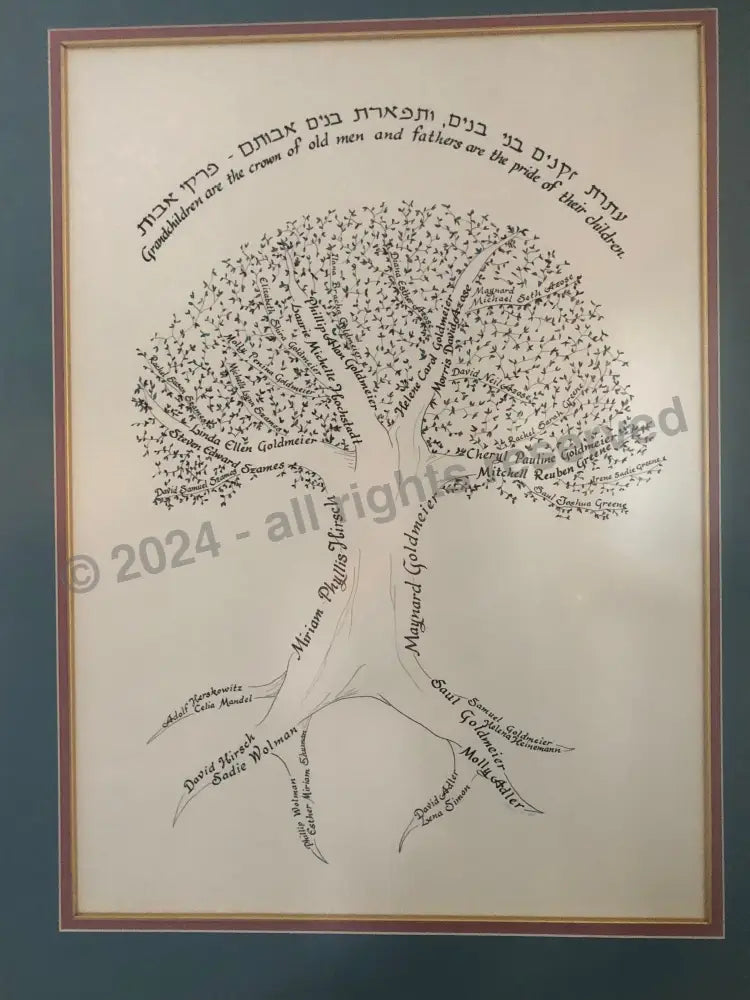 עטרת זקנים בני בנים, ותפארת בנים אבותם - פרקי אבות
Grandchildren are the crown of old men and fathers are the pride of their children.
Elizabeth
Goldmeier
Molly Penina Goldmeier
Laurie Michelle Hochstadt
Phillip Alan Goldmeier
Helene Carol Goldmeier
Morris David Azose
Maynard
Michael Seth Azose
David Neil Azose
Rachel Sarah Greene
Linda Ellen Goldmeier
Steven Edward Szames
David Samuel Szames
Cheryl Pauline Goldmeier
Mitchell Reuben Greene
Irene Sadie Greene
Saul Joshua Greene
© 2024 - all rights reserved
Miriam Phyllis Hirsch
Maynard Goldmeier
Adolf Herskowitz
Celia Mandel
David Hirsch
Sadie Wolman
Phillip Wolman
Esther Miriam
Saul Goldmeier
Molly Adler
Samuel Goldmeier
Helena Heinemann
David Adler
Lena Simon